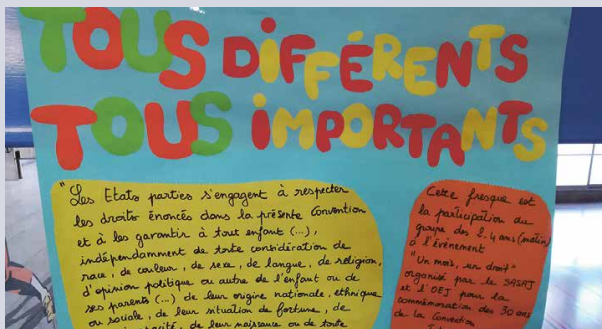 TOUS DIFFÉRENTS
TOUS IMPORTANTS
"Les Etats parties s'engagent à respecter
les droits énoncés dans la présente Convention
et à les garantir à tout enfant (...),
indépendamment de toute considération de
race, de couleur, de sexe, de langue, de religion,
d'opinion politique ou autre de l'enfant ou de
ses parents (...) de leur origine nationale, ethnique
ou sociale, de leur situation de fortune, de
de leur naissance ou de toute
Cette fresque est
la participation du
groupe des 2-4 ans (matin)
à l'événement
"Un mois, un droit"
organisé par le SASAJ
et l'OEJ pour la
commémoration des 30 ans
de la Convention